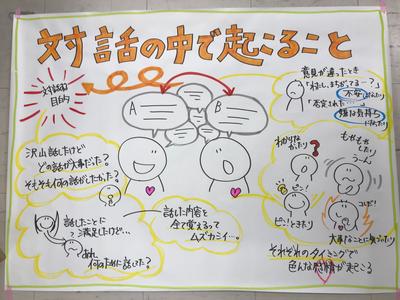 対話の中で起こること
対話の
目的
A
B
意見が違ったとき
「わたし、まちがってるー？」
不安になったり
「否定された……」
嫌な気持ち
になったり
沢山話したけど
どの話が大事だった？
そもそも何の話がしたかった？
わからなかったり
?
もやもや
したり
うーん
ピン!
ピン!ときたり
コレだ!
大事なことに気づいたり
話したことに
満足したけど…
あれ
何のために話した？
話した内容を
全て覚えるって
ムズカシイ…。
それぞれのタイミングで
色んな感情が起こる